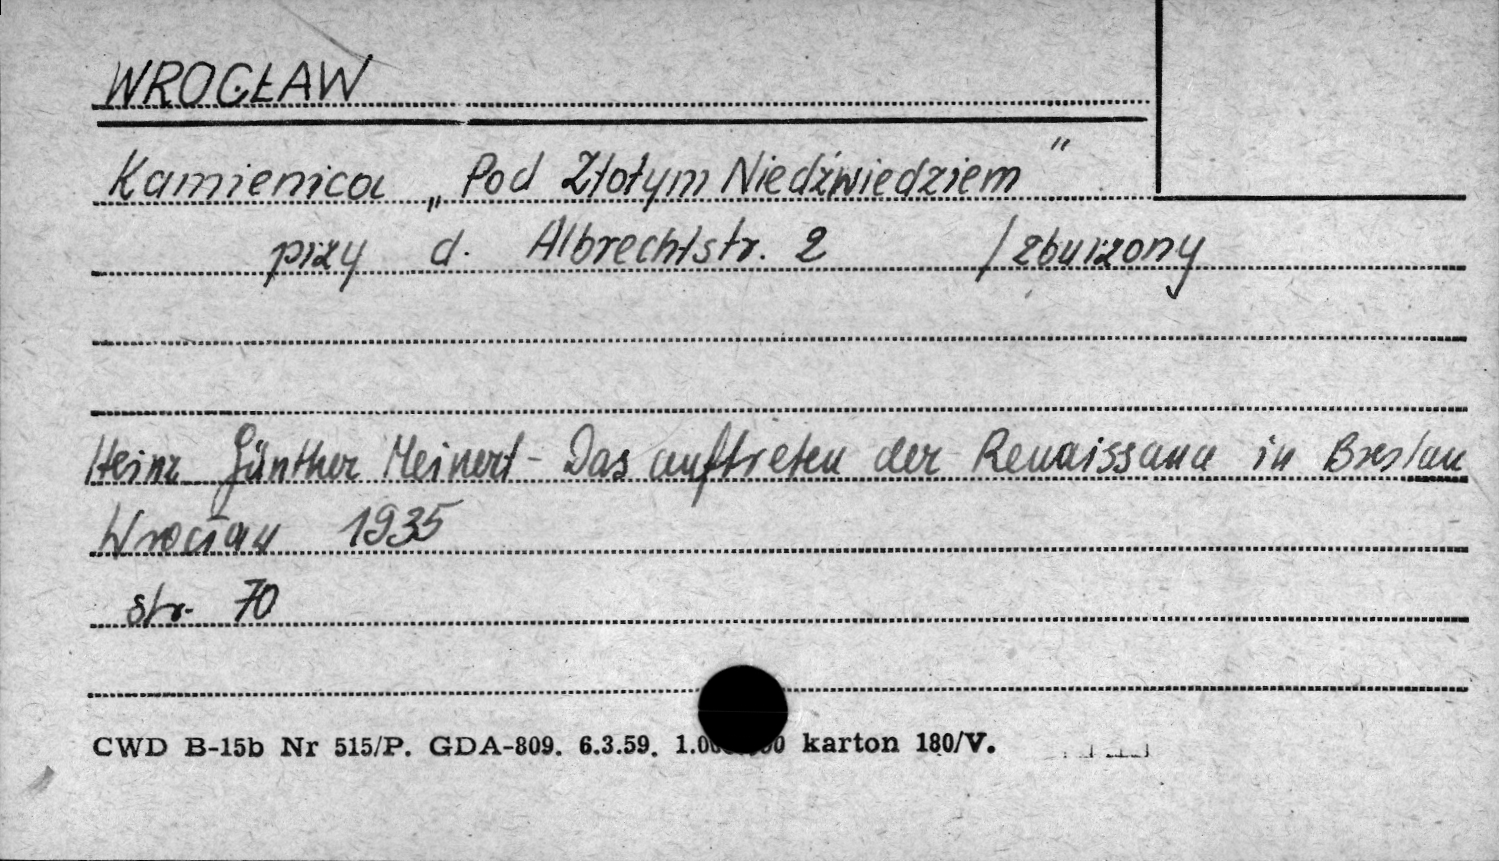 WROCŁAW
Kamienica „Pod Złotym Niedźwiedziem”
przy d. Albrechtstr. 2 /zburzony
Heinz Günther Meinert - Das auftreten der Renaissance in Breslau
Wrocław 1935
str. 70
CWD B-15b Nr 515/P. GDA-809. 6.3.59. karton 180/V.